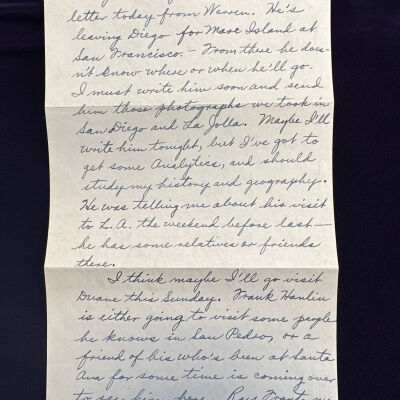 letter today from Warren. He's
leaving Diego for Mare Island at
San Francisco. – From there he does-
n't know where or when he'll go.
I must write him soon and send
him those photographs we took in
San Diego and La Jolla. Maybe I'll
write him tonight, but I've got to
get some Analytics, and should
study my history and geography.
He was telling me about his visit
to L.A. the weekend before last —
he has some relatives or friends
there.
I think maybe I'll go visit
Duane this Sunday. Frank Hanlin
is either going to visit some people
he knows in San Pedro, or a
friend of his who's been at Santa
Ana for some time is coming over
to see him here.